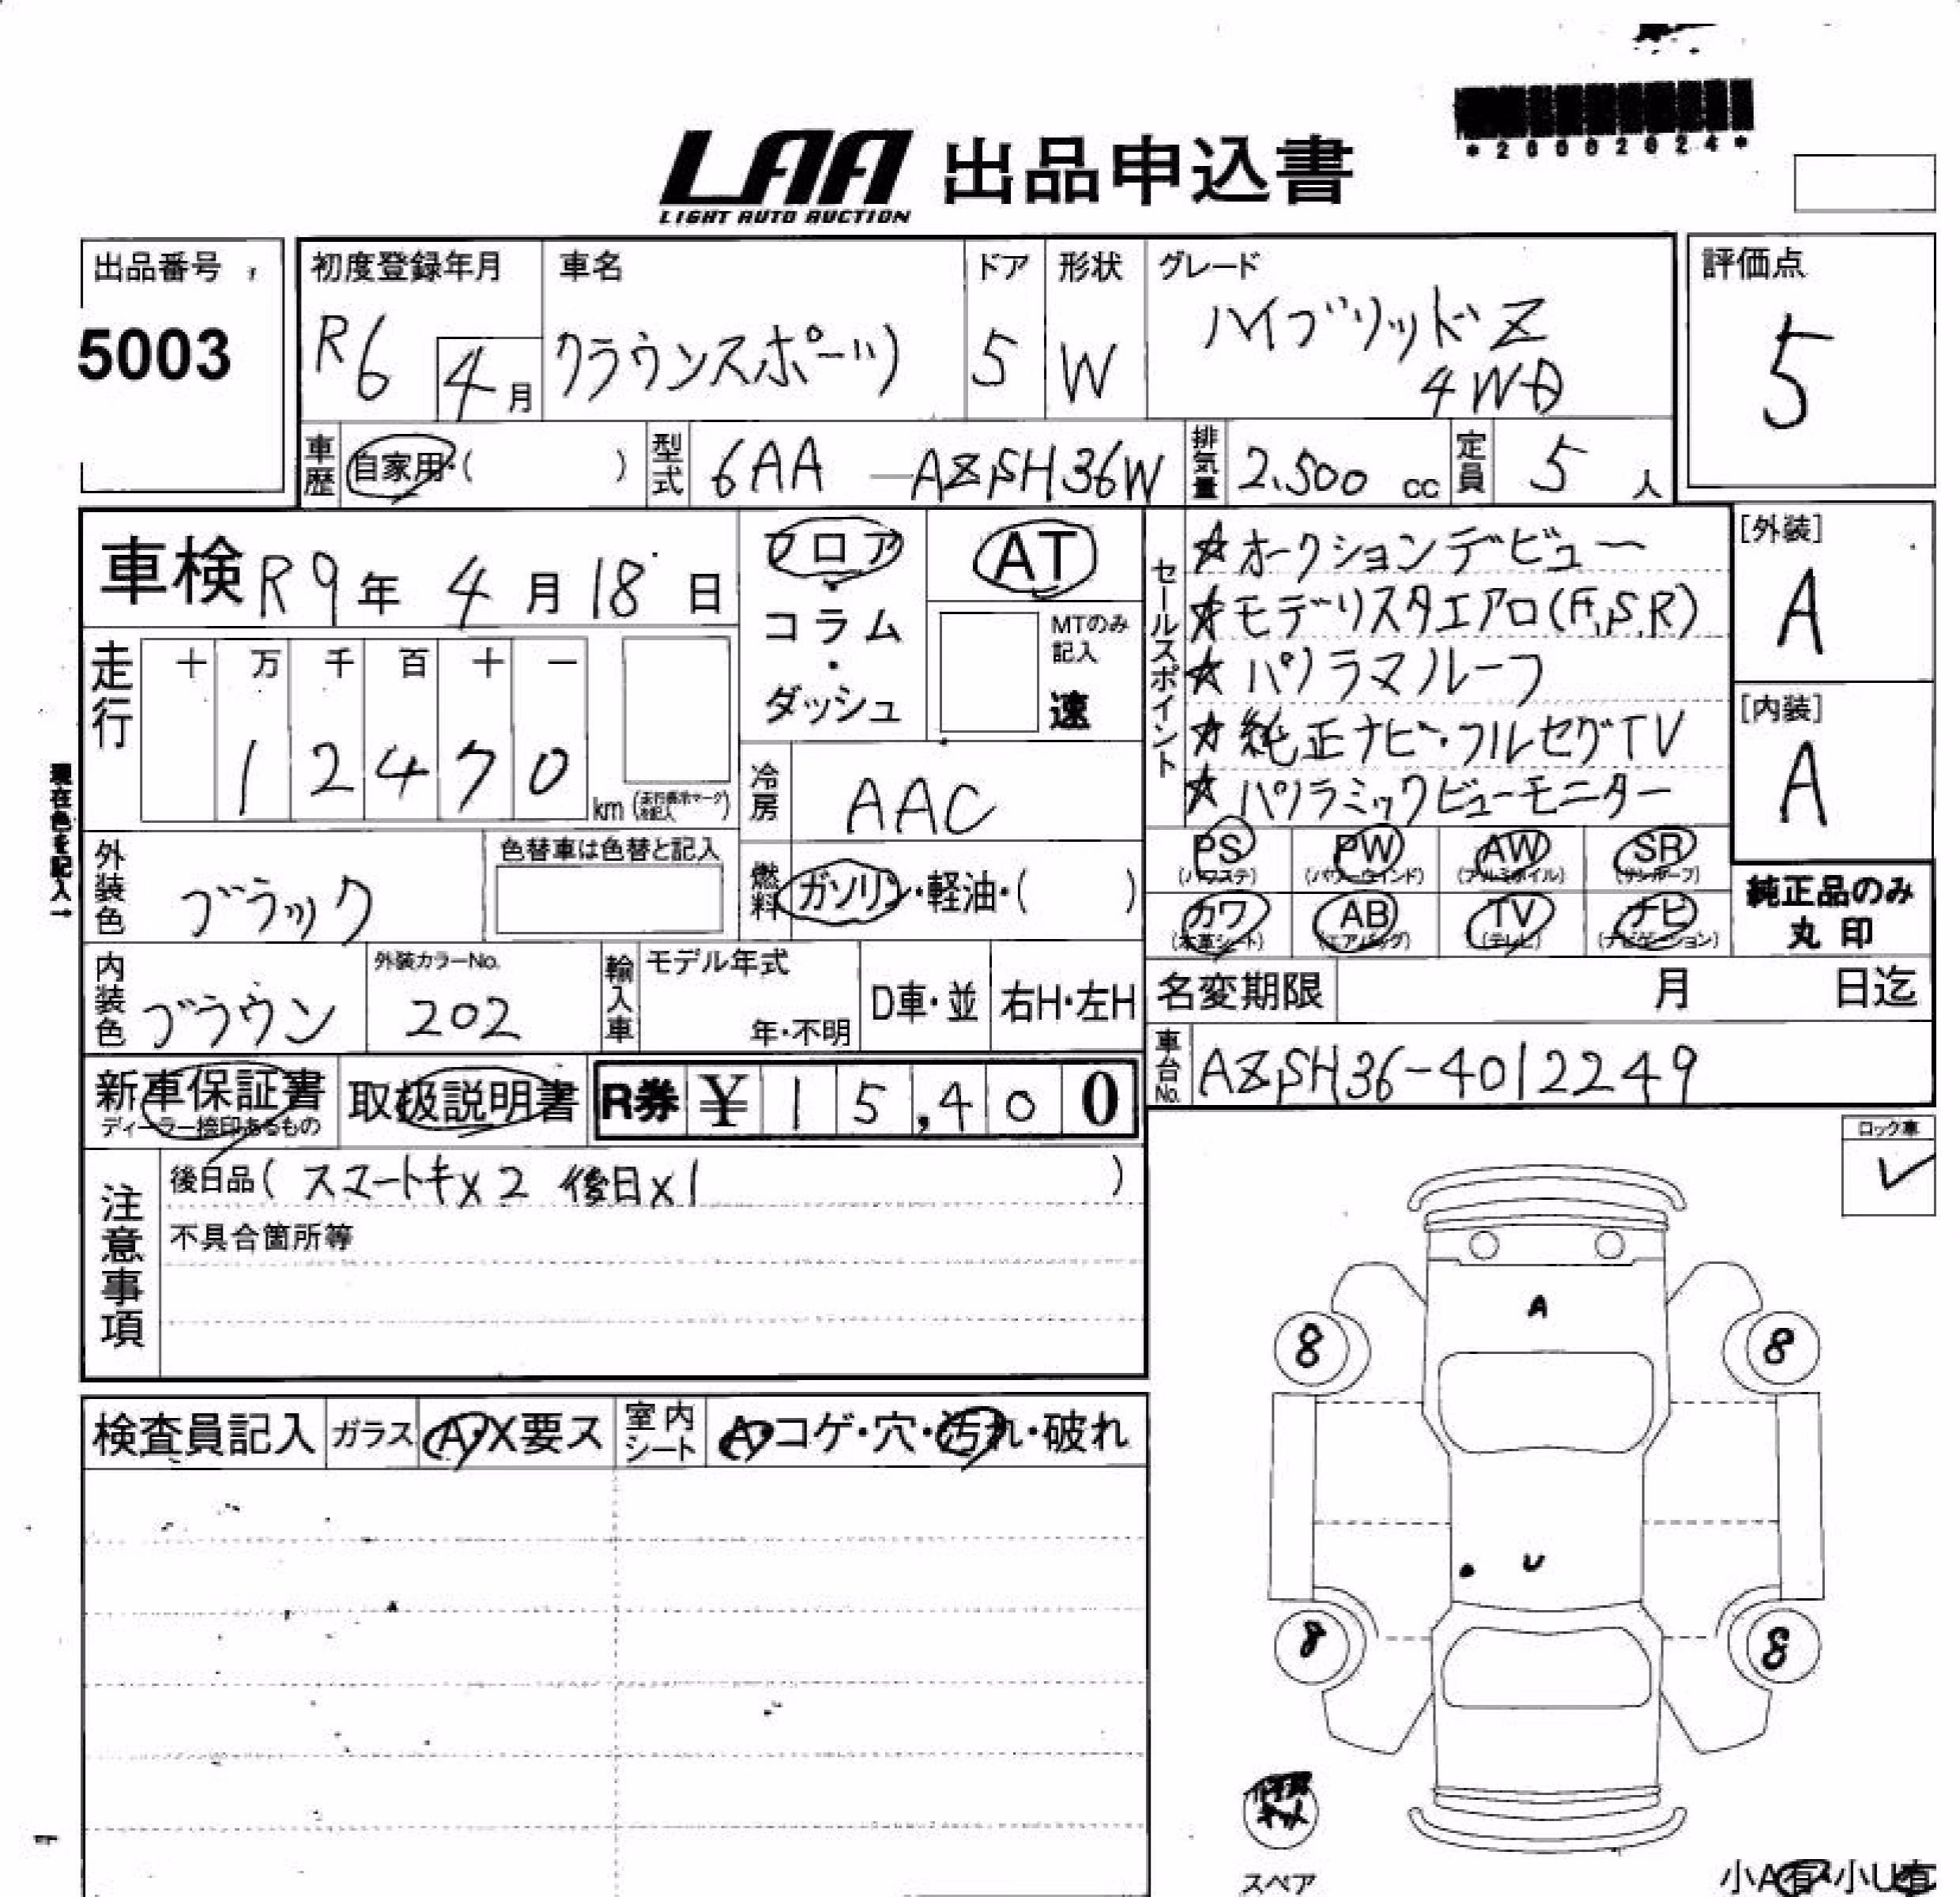 *26002024*
LAA 出品申込書
LIGHT AUTO AUCTION
出品番号
5003
初度登録年月
R6 4月
車名
クラウンスポーツ
ドア
5
形状
W
グレード
ハイブリッドZ
4WD
評価点
5
車歴 自家用・( )
型式 6AA-AZSH36W
排気量 2.500 cc
定員 5 人
車検 R9年 4月 18日
フロア
・
コラム
・
ダッシュ
AT
MTのみ
記入
速
セールスポイント
☆オークションデビュー
☆モデリスタエアロ(F,S,R)
☆パノラマルーフ
☆純正ナビ・フルセグTV
☆パノラミックビューモニター
[外装]
A
[内装]
A
走行
十 万 千 百 十 一
1 2 4 7 0 km
現在色を記入→
冷房 AAC
外装色 ブラック
色替車は色替と記入
燃料 ガソリン・軽油・( )
PS (パワステ) PW (パワーウインド) AW (アルミホイル) SR (サンルーフ)
カワ (本革シート) AB (エアバッグ) TV (テレビ) ナビ (ナビゲーション)
純正品のみ
丸印
内装色 ブラウン
外装カラーNo.
202
輸入車
モデル年式
年・不明
D車・並
右H・左H
名変期限 月 日迄
車台No. AZSH36-4012249
新車保証書
ディーラー捺印あるもの
取扱説明書
R券 ¥ 15,400
ロック車
✓
注意事項
後日品( スマートキx2 後日x1 )
不具合箇所等
検査員記入
ガラス A・X要ス
室内シート A・コゲ・穴・汚れ・破れ
A
8 8
U
8 8
スペア
小A有・小U有